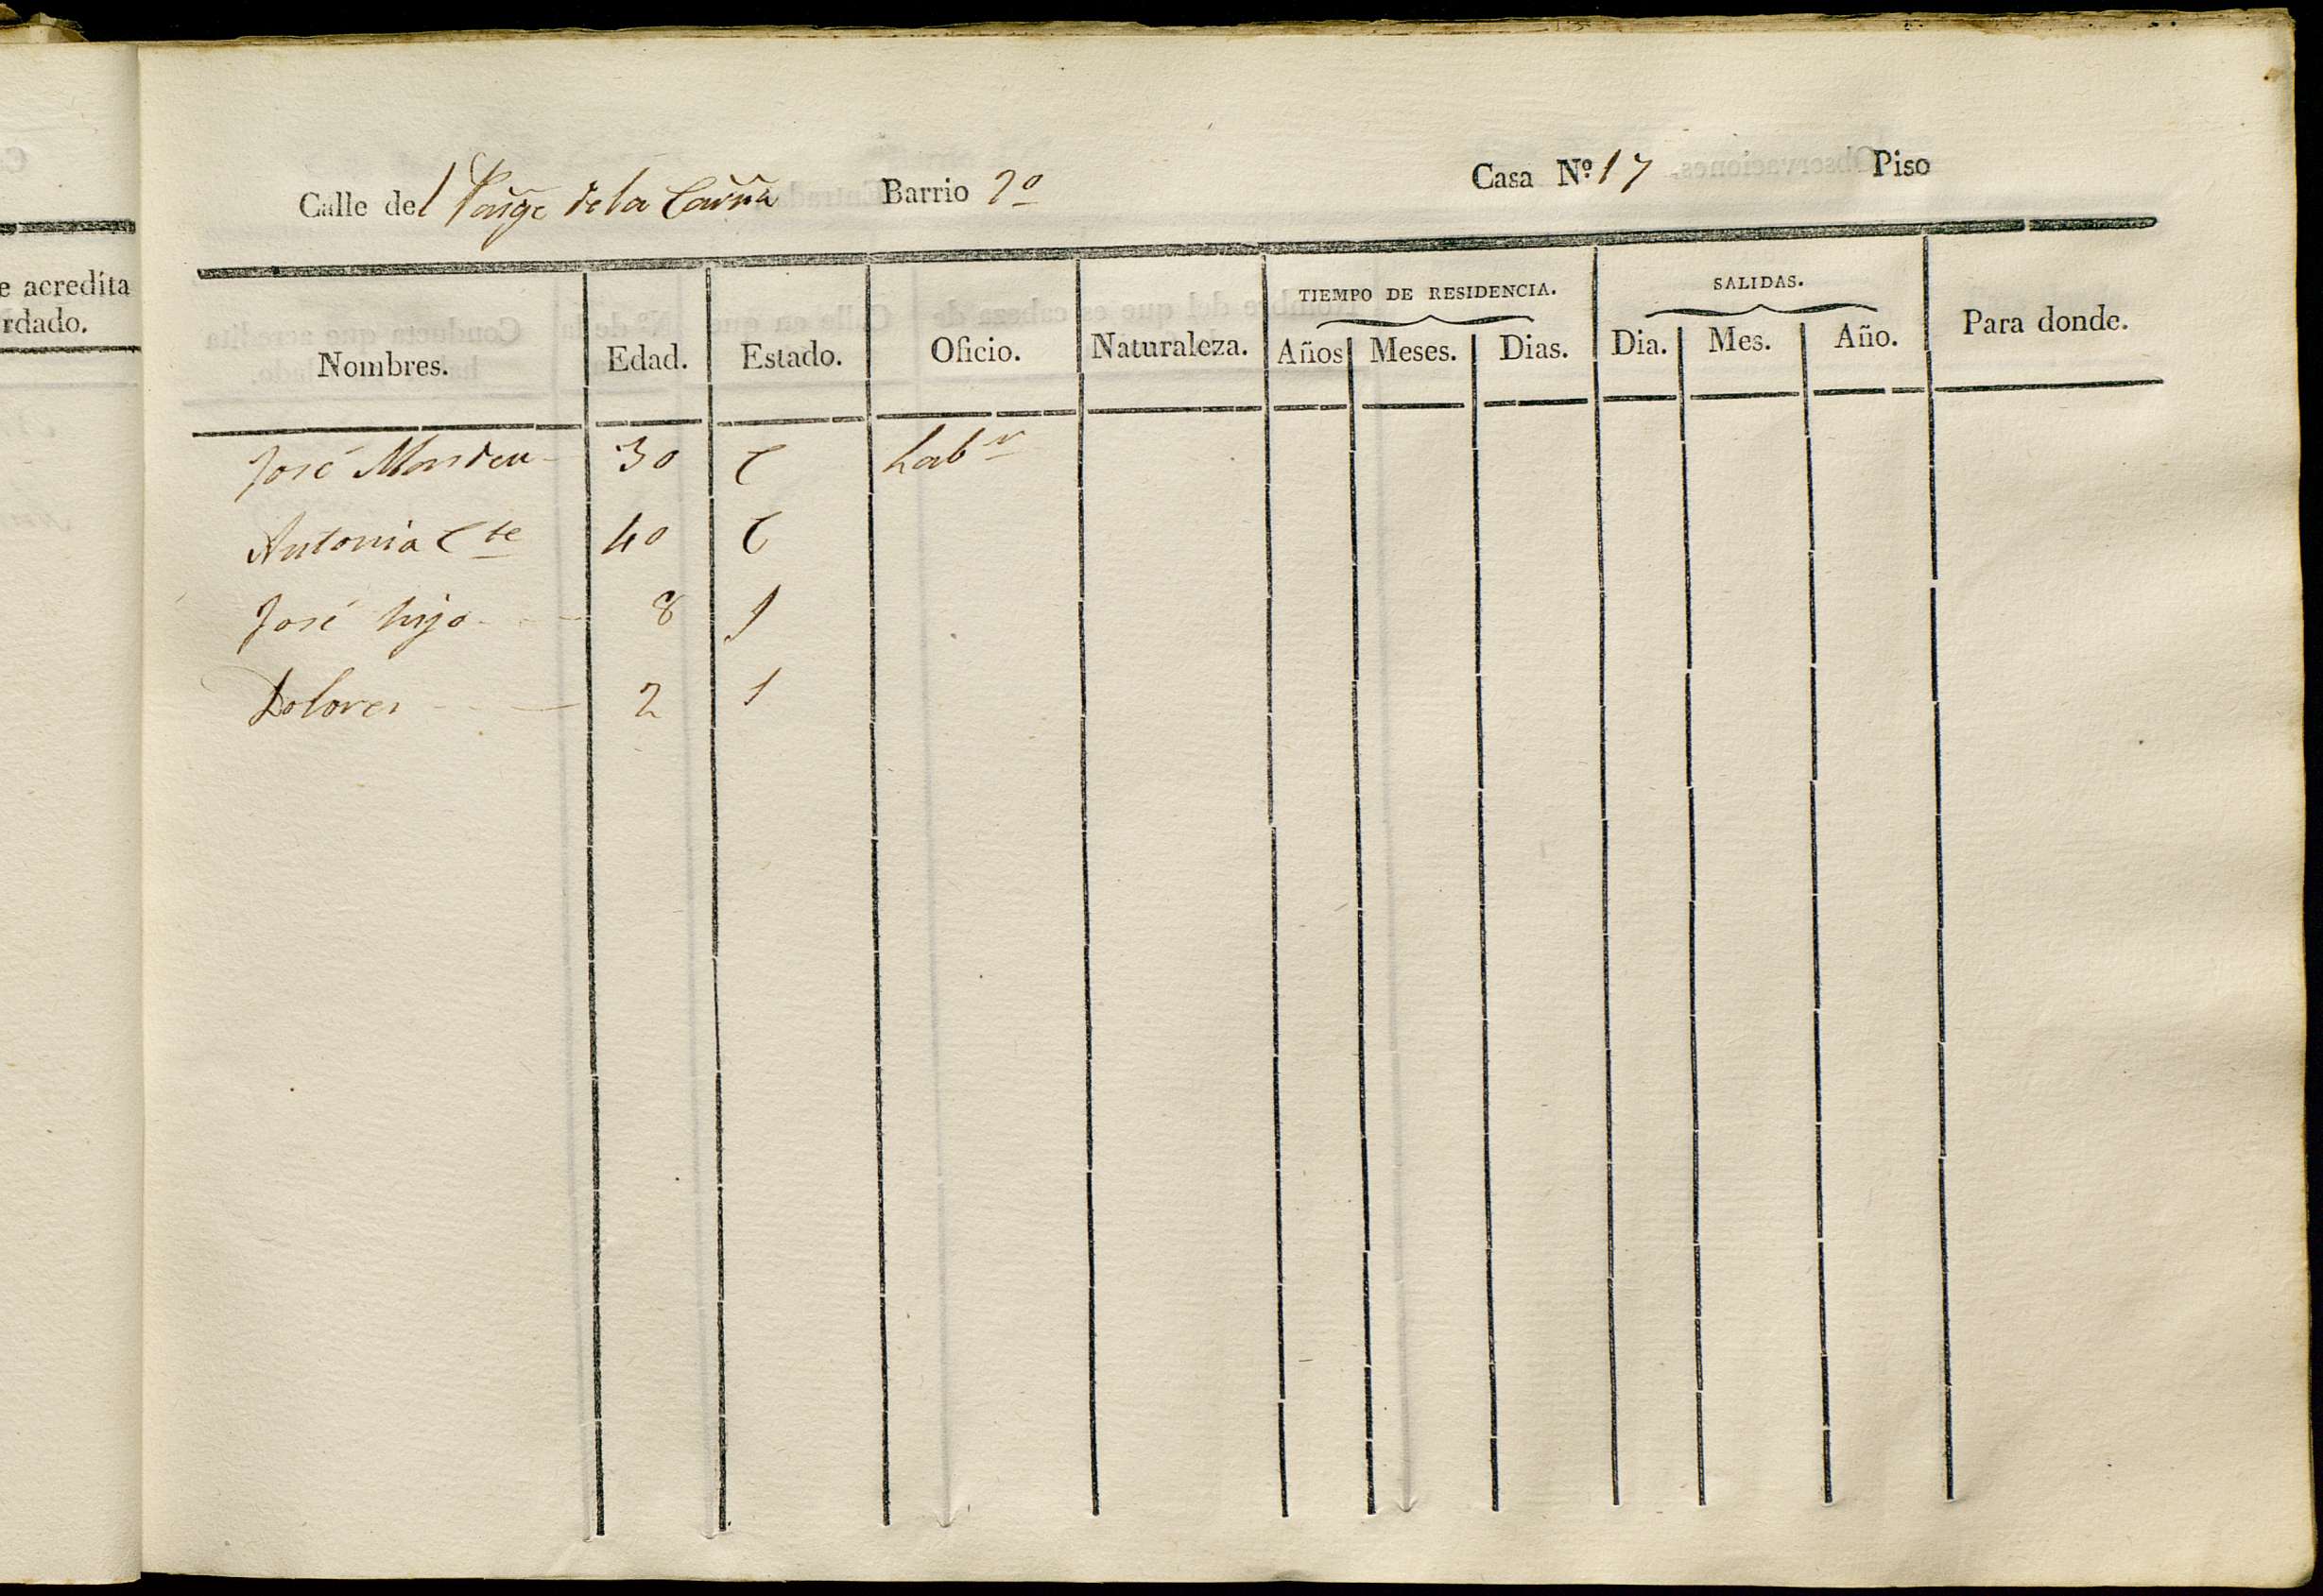 e acredita
rdado.
Calle del de la Barrio 2º Casa Nº 17 Piso
Nombres. Edad. Estado. Oficio. Naturaleza. TIEMPO DE RESIDENCIA. Años Meses. Dias. SALIDAS. Dia. Mes. Año. Para donde.
José 30 C Labr
Antonia Cte 40 C
José hijo 8 S
Dolores 2 S